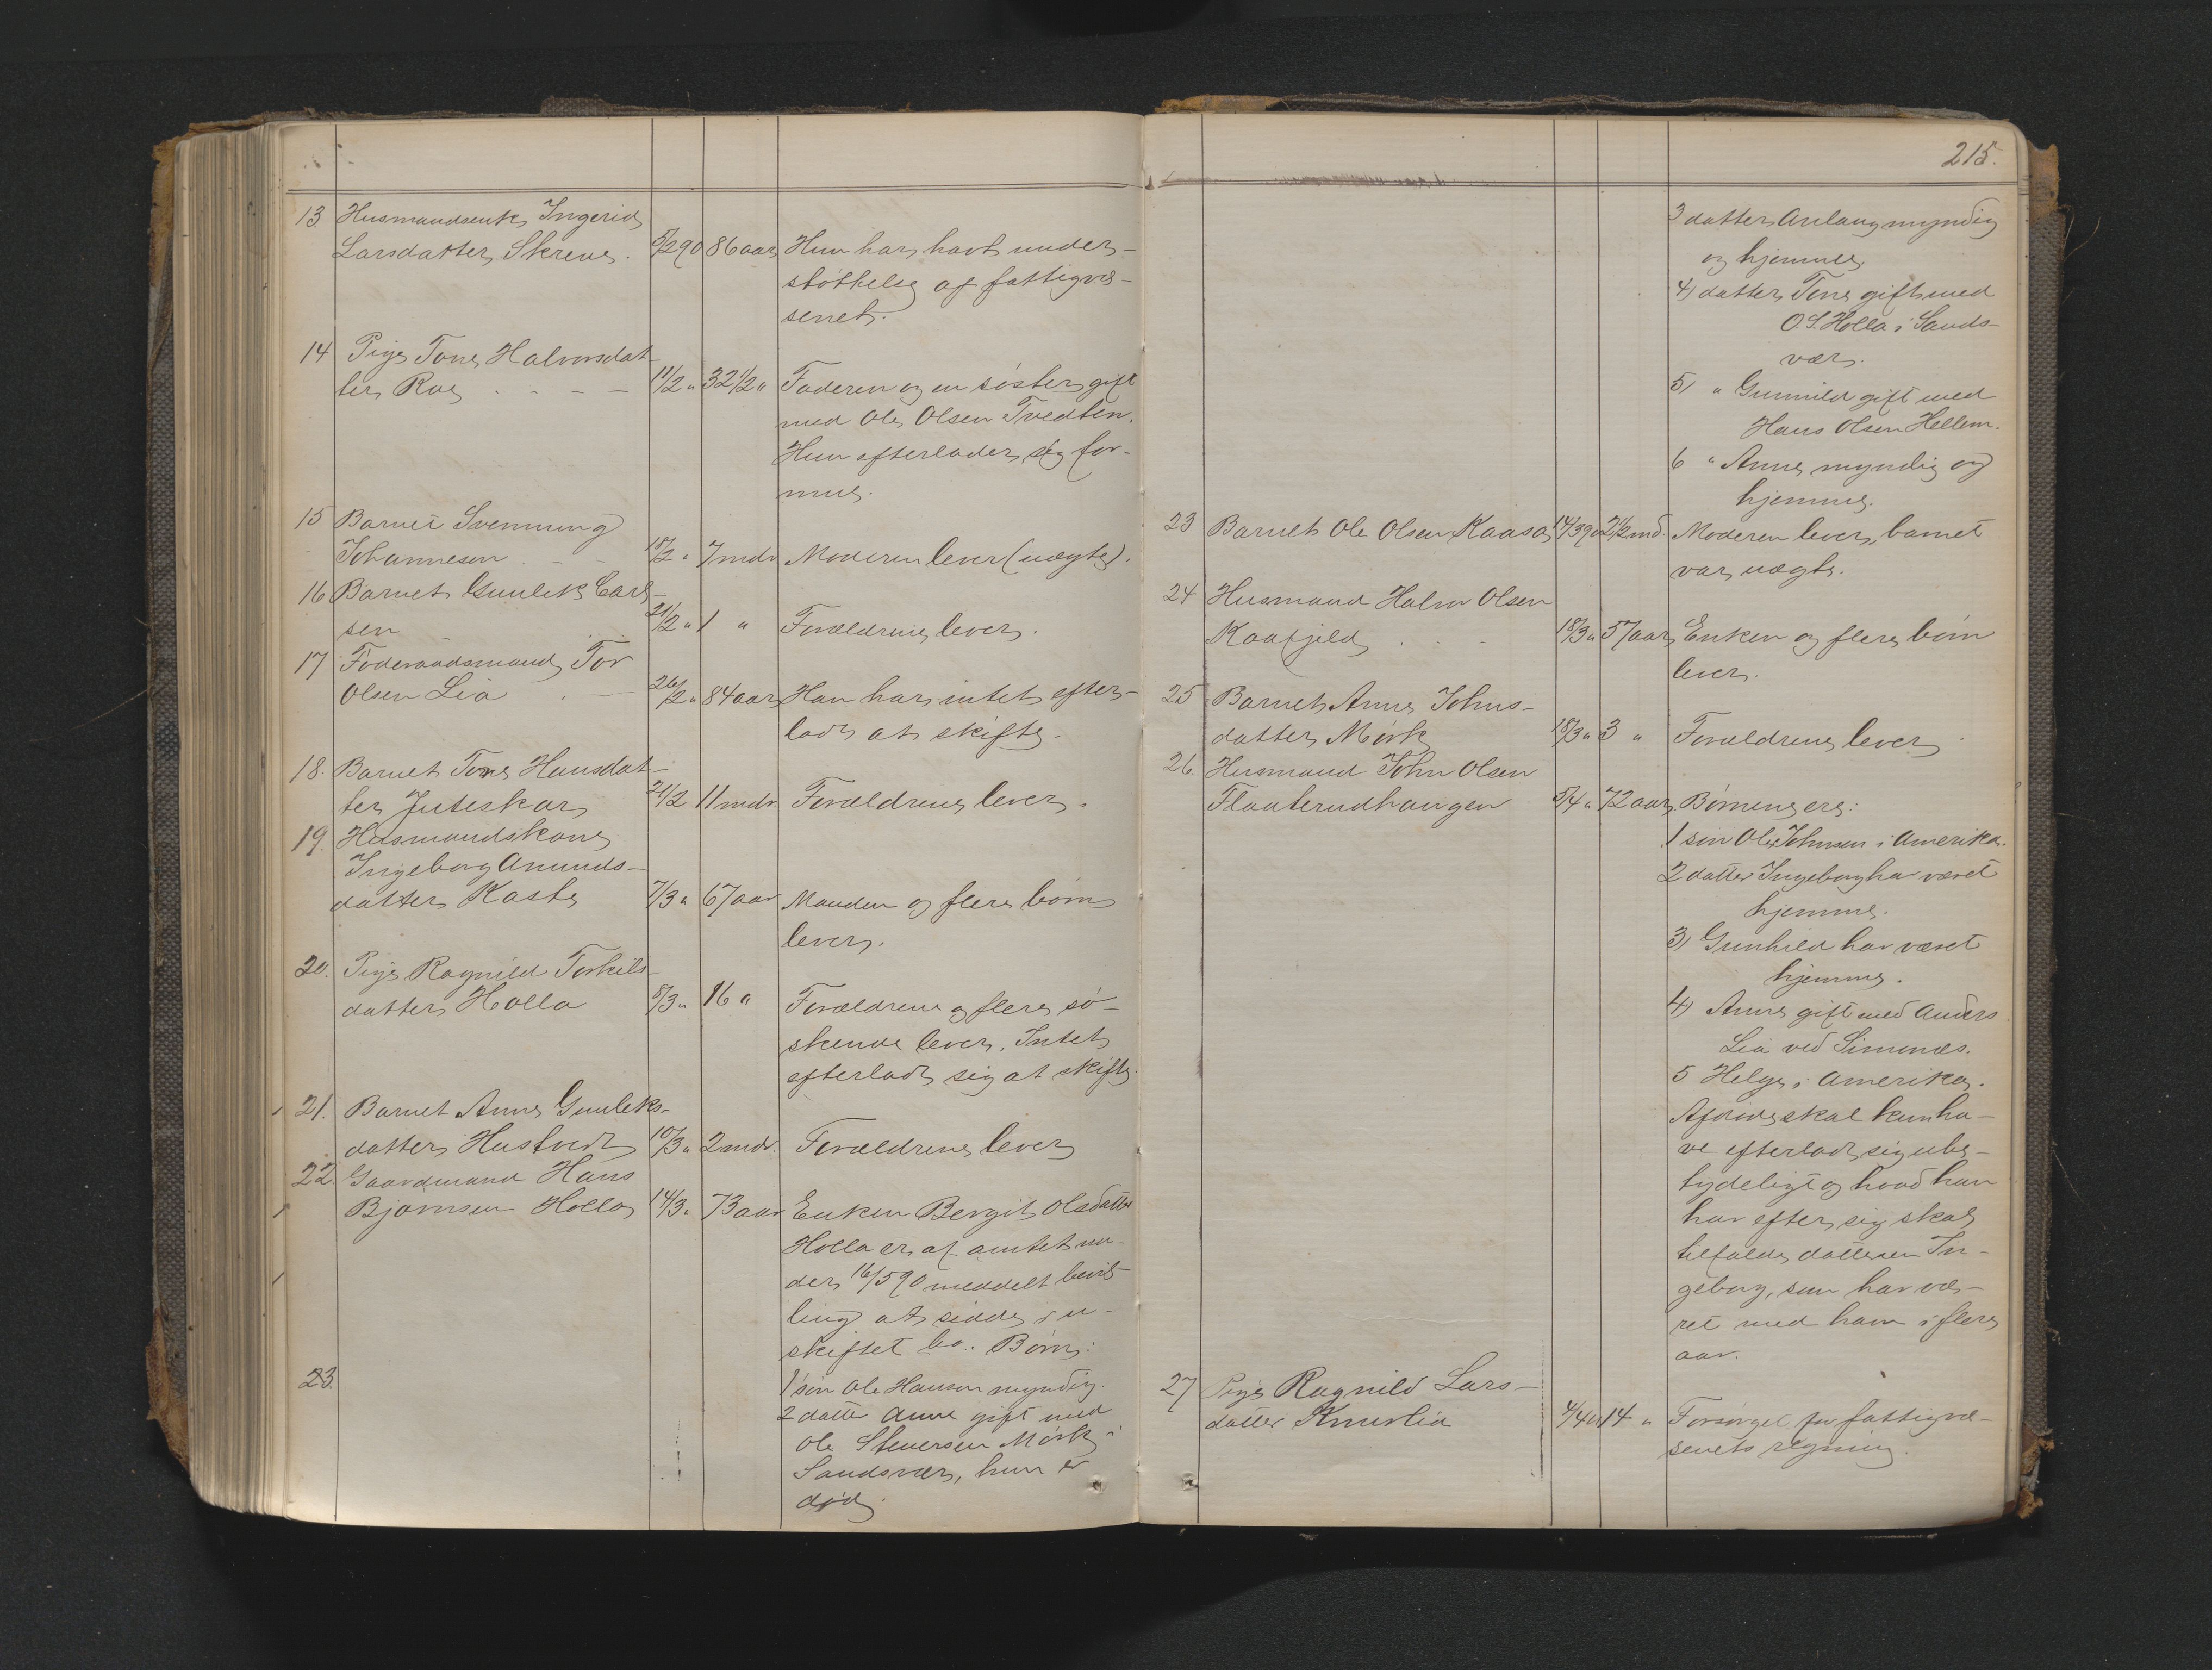 13 Husmandsenke Ingerid
Larsdatter Skrene. 5/2 90 86 aar Hun har havt under-
støttelse af fattigvæ-
senet.
14 Pige Tone Halvorsdat-
ter Roe . - - - 11/2 " 32 1/2 " Faderen og en søster gift
med Ole Olsen Tvedten.
Hun efterlader sig for-
mue.
15 Barnet Svennung
Johannesen . - 15/2 " 7 mdr Moderen lever (uægte).
16 Barnet Gunleik Carl-
sen 21/2 " 1 " Forældrene lever.
17 Foderaadsmand Tor
Olsen Lia . - 26/2 " 84 aar Han har intet efter-
ladt at skifte.
18. Barnet Tone Hansdat-
ter Juteskar 21/2 11 mdr. Forældrene lever.
19. Husmandskone
Ingeborg Amunds-
datter Kaste 7/3 " 67 aar Manden og flere børn
lever.
20. Pige Ragnild Torkils-
datter Holla 8/3 " 16 " Forældrene og flere sø-
skende lever. Intet
efterladt sig at skifte.
21. Barnet Anne Gunleiks-
datter Hustvedt 10/3 " 2 mdr. Forældrene lever
22. Gaardmand Hans
Bjørnsen Holla 14/3 " 73 aar Enken Bergit Olsdatter
Holla er af amtet un-
der 16/5 90 meddelt bevil-
ling at sidde i u-
skiftet bo. Børn:
23. 1 søn Ole Hansen myndig.
2 datter Anne gift med
Ole Steversen Mørk i
Sandsvær, hun er
død.
215.
3 datter Aslaug myndig
og hjemme.
4) datter Tone gift med
O S. Holla i Sands-
vær.
5) " Gunnild gift med
Hans Olsen Hellem.
6 " Anne myndig og
hjemme.
23 Barnet Ole Olsen Kaasa 14/3 90 2 1/2 md. Moderen lever, barnet
var uægte.
24 Husmand Halvor Olsen
Kaafjeld . . - 18/3 " 57 aar Enken og flere børn
lever.
25 Barnet Anne Johns-
datter Mørk 18/3 " 3 " Forældrene lever
26. Husmand John Olsen
Flaaterudhaugen 5/4 " 72 aar Børnene ere:
1 søn Ole Johnsen i Amerika.
2 datter Ingeborg har været
hjemme.
3) Gunhild har været
hjemme.
4) Anne gift med Anders
Lia ved Simonæs.
5 Helge i Amerika.
Afdøde skal kun ha-
ve efterladt sig ube-
tydeligt og hvad han
har efter sig skal
tilfalde datteren In-
geborg, som har væ-
ret med ham i flere
aar.
27 Pige Ragnild Lars-
datter Knurlia 4/4 " 14 " Forsørget for fattigvæ-
senets regning.